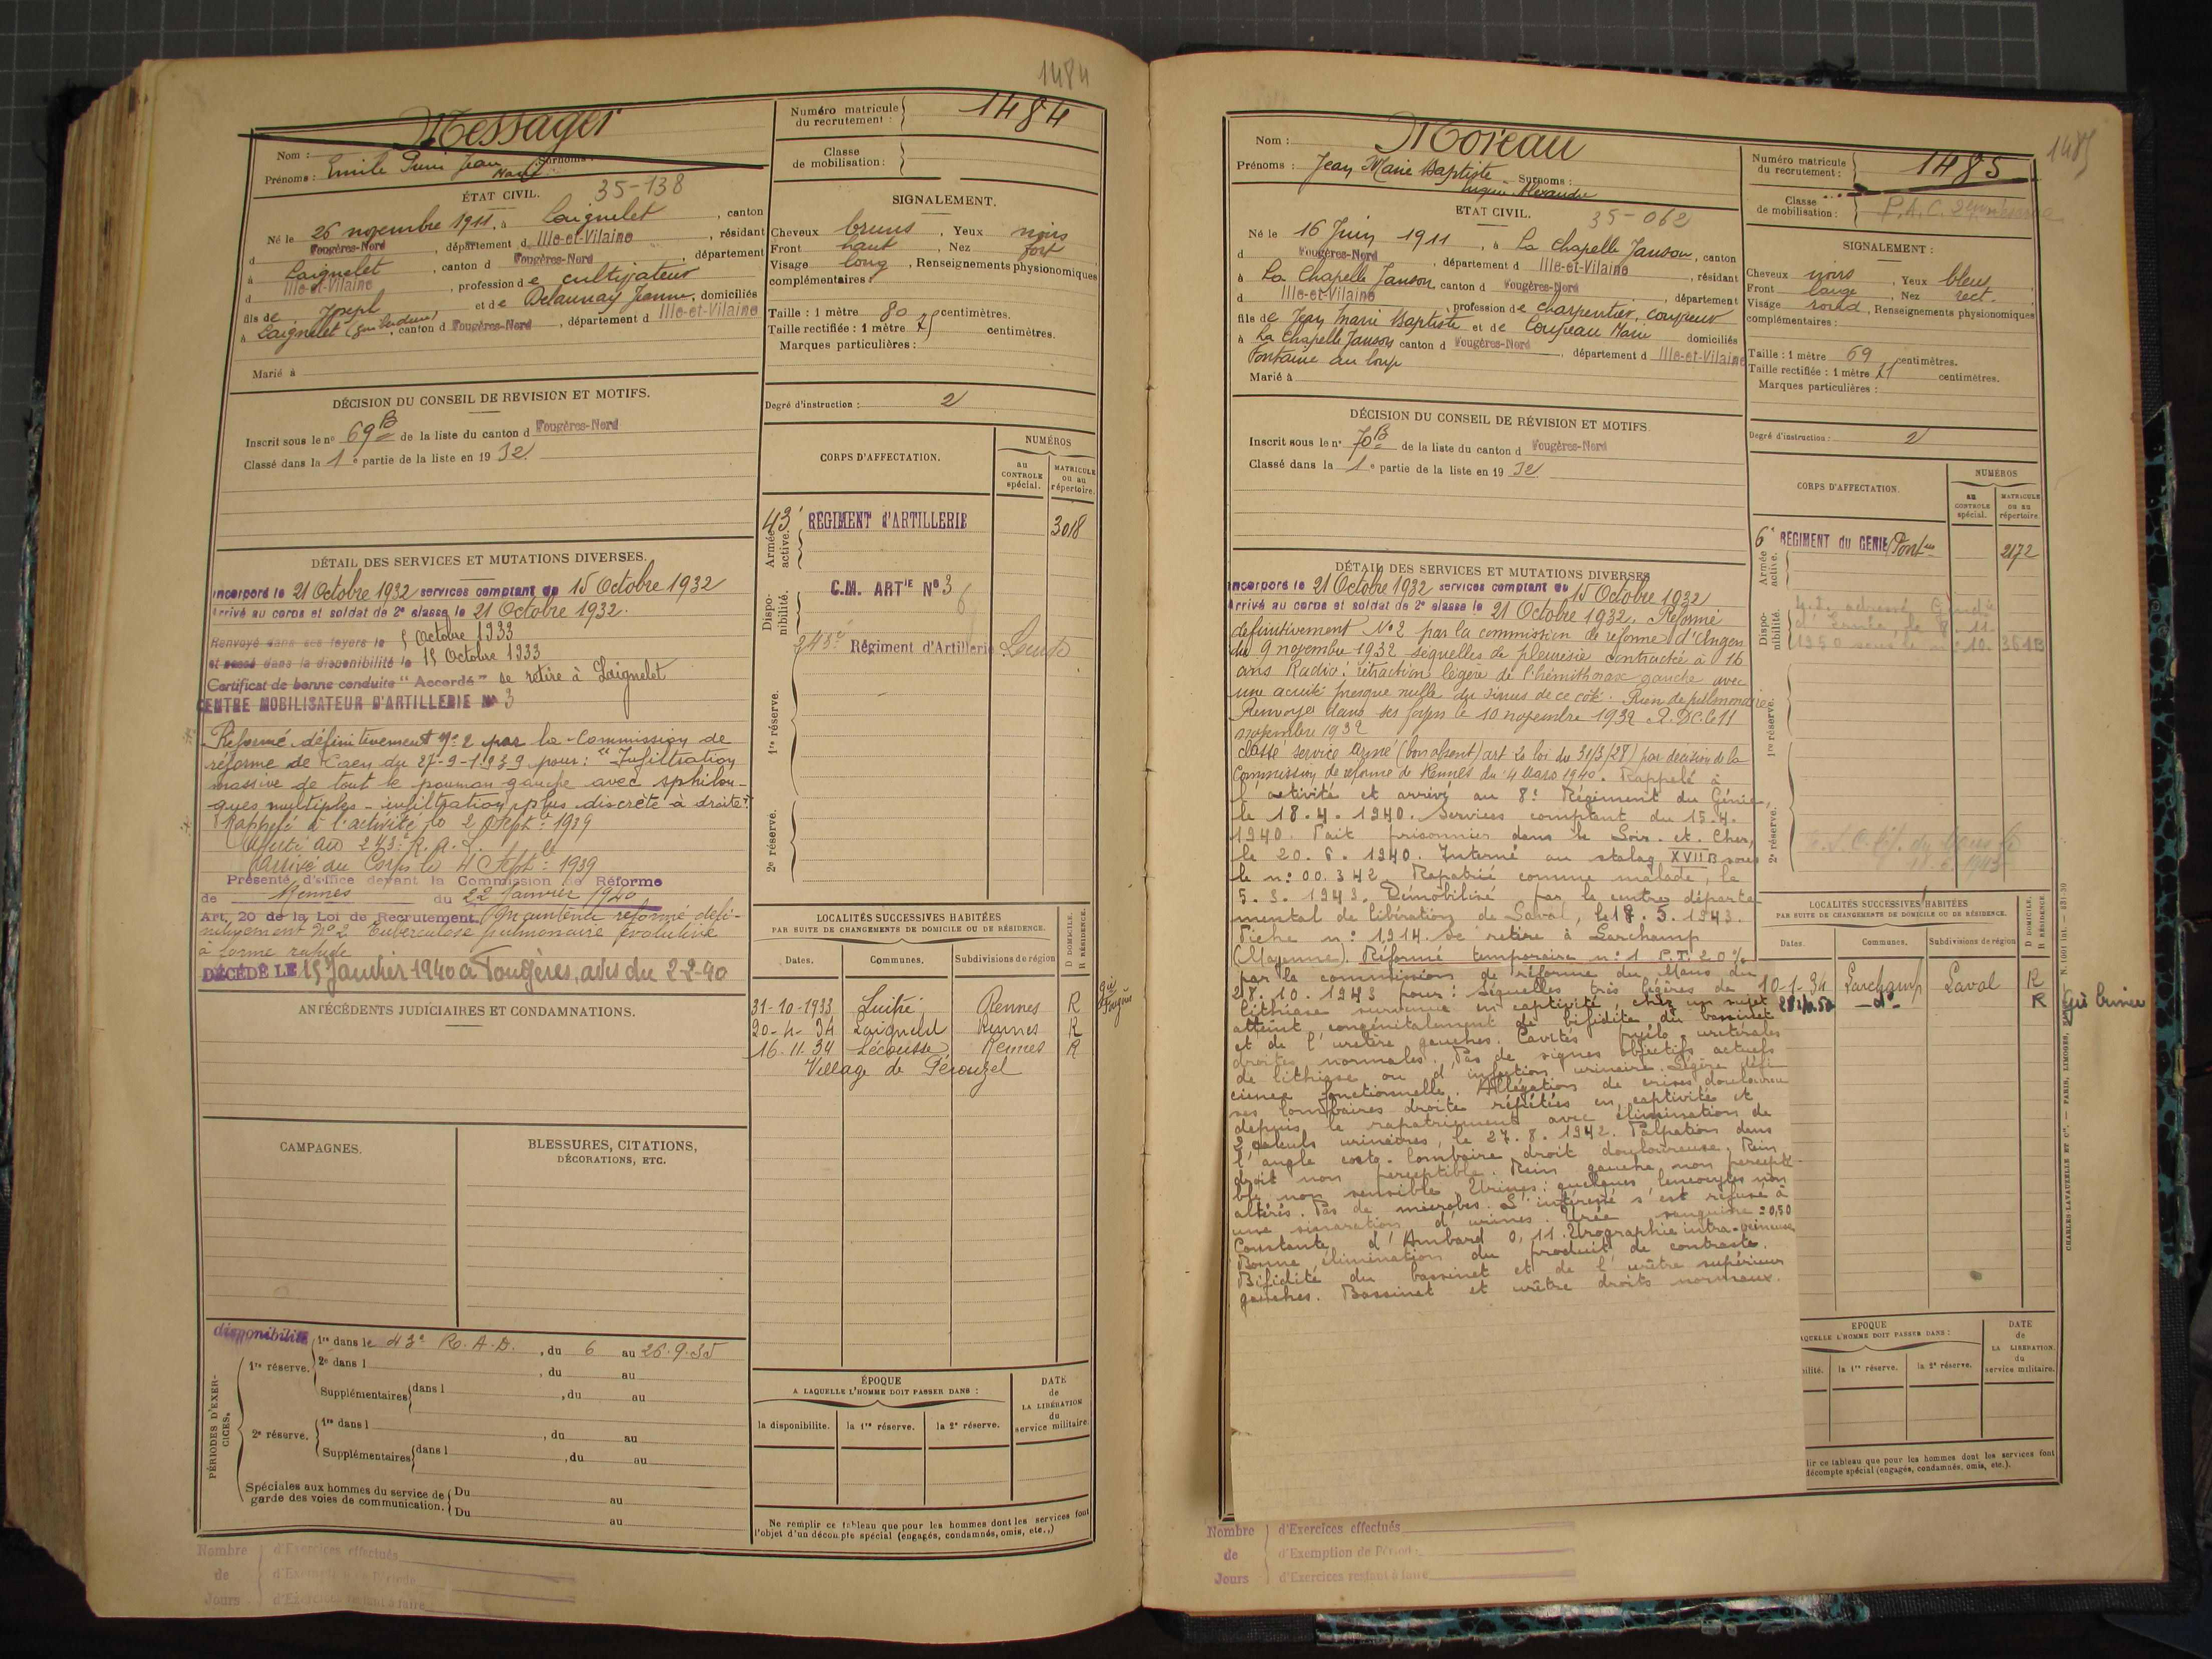 1484
Messager
Nom :
Prénoms : Emile Jean Marie Surnoms :
ÉTAT CIVIL. 35-138
Né le 26 novembre 1911, à Laignelet, canton
d Fougères-Nord, département d Ille-et-Vilaine, résidant
à Laignelet, canton d Fougères-Nord, département
d Ille-et-Vilaine, profession de cultivateur
fils de Joseph et de Delaunay Jeanne, domiciliés
à Laignelet, canton d Fougères-Nord, département d Ille-et-Vilaine
Marié à
Numéro matricule du recrutement : 1484
Classe de mobilisation :
SIGNALEMENT.
Cheveux bruns, Yeux noirs
Front haut, Nez fort
Visage long, Renseignements physionomiques
complémentaires :
Taille : 1 mètre 80 centimètres.
Taille rectifiée : 1 mètre centimètres.
Marques particulières :
Degré d'instruction : 2
DÉCISION DU CONSEIL DE REVISION ET MOTIFS.
Inscrit sous le n° 69 B de la liste du canton d Fougères-Nord
Classé dans la 1e partie de la liste en 1932.
CORPS D'AFFECTATION.
NUMÉROS
au CONTROLE spécial.
MATRICULE ou au répertoire.
Armée active.
43e RÉGIMENT d'ARTILLERIE 3018
Disponibilité.
C.M. ARTIE No 3
6
243e Régiment d'Artillerie Lourde
1re réserve.
2e réserve.
DÉTAIL DES SERVICES ET MUTATIONS DIVERSES.
Incorporé le 21 Octobre 1932 services comptant du 15 Octobre 1932
Arrivé au corps et soldat de 2e classe le 21 Octobre 1932.
Renvoyé dans ses foyers le 5 Octobre 1933
et passé dans la disponibilité le 15 Octobre 1933
Certificat de bonne conduite "Accordé" se retire à Laignelet
CENTRE MOBILISATEUR D'ARTILLERIE No 3
Réformé définitivement No 2 par la Commission de
réforme de Caen du 27-9-1939 pour : "Infiltration
massive de tout le poumon gauche avec sphilou-
ques multiples - infiltration plus discrète à droite".
Rappelé à l'activité le 2 Septbre 1939
Affecté au 243e R.A.L.
Arrivé au Corps le 4 Septbre 1939
Présenté d'office devant la Commission de Réforme
de Rennes du 22 Janvier 1940
Art. 20 de la Loi de Recrutement. Maintenu réformé défi-
nitivement No 2 Tuberculose pulmonaire évolutive
à forme rapide
DÉCÉDÉ LE 15 Janvier 1940 à Fougères, avis du 2-2-40
LOCALITÉS SUCCESSIVES HABITÉES
PAR SUITE DE CHANGEMENTS DE DOMICILE OU DE RÉSIDENCE.
Dates. Communes. Subdivisions de région D DOMICILE. R RÉSIDENCE.
31-10-1933 Luitré Rennes R
20-4-34 Laignelet Rennes R
16.11.34 Lécousse Rennes R
Village de Pérouzel
ANTÉCÉDENTS JUDICIAIRES ET CONDAMNATIONS.
CAMPAGNES.
BLESSURES, CITATIONS,
DÉCORATIONS, ETC.
PÉRIODES D'EXERCICES.
disponibilité
1re réserve. 1re dans le 43e R.A.D., du 6 au 26.9.35
2e dans l , du au
Supplémentaires dans l , du au
2e réserve. 1re dans l , du au
Supplémentaires dans l , du au
Spéciales aux hommes du service de garde des voies de communication. Du au
Du au
ÉPOQUE
A LAQUELLE L'HOMME DOIT PASSER DANS :
la disponibilité. la 1re réserve. la 2e réserve.
DATE de LA LIBÉRATION du service militaire.
Ne remplir ce tableau que pour les hommes dont les services font
l'objet d'un décompte spécial (engagés, condamnés, omis, etc.,)
Nombre de Jours
d'Exercices effectués
d'Exemption de Période
d'Exercices restant à faire
1485
Nom : Moreau
Prénoms : Jean Marie Baptiste Surnoms :
Alexandre
ÉTAT CIVIL. 35-062
Né le 16 Juin 1911, à La Chapelle Janson, canton
d Fougères-Nord, département d Ille-et-Vilaine, résidant
à La Chapelle Janson, canton d Fougères-Nord, département
d Ille-et-Vilaine, profession de charpentier, couvreur
fils de Jean Marie Baptiste et de Coupeau Marie domiciliés
à La Chapelle Janson canton d Fougères-Nord, département d Ille-et-Vilaine
Fontaine au loup
Marié à
Numéro matricule du recrutement : 1485
Classe de mobilisation :
SIGNALEMENT :
Cheveux noirs, Yeux bleus
Front large, Nez rect.
Visage rond, Renseignements physionomiques
complémentaires :
Taille : 1 mètre 69 centimètres.
Taille rectifiée : 1 mètre 71 centimètres.
Marques particulières :
Degré d'instruction : 2
DÉCISION DU CONSEIL DE RÉVISION ET MOTIFS.
Inscrit sous le n° 70 B de la liste du canton d Fougères-Nord
Classé dans la 1e partie de la liste en 1932
CORPS D'AFFECTATION.
NUMÉROS
au CONTROLE spécial.
MATRICULE ou au répertoire.
Armée active.
6e RÉGIMENT du GÉNIE 2172
Disponibilité.
1re réserve.
2e réserve.
DÉTAIL DES SERVICES ET MUTATIONS DIVERSES
Incorporé le 21 Octobre 1932 services comptant du 15 Octobre 1932
Arrivé au corps et soldat de 2e classe le 21 Octobre 1932. Réformé
définitivement No 2 par la commission de réforme d'Angers
du 9 novembre 1932 séquelles de pleurésie contractée à 16
ans Radio : rétraction légère de l'hémithorax gauche avec
une acuité presque nulle du sinus de ce côté. Rien de pulmonaire
Renvoyé dans ses foyers le 10 novembre 1932 R.D.C. le 11
novembre 1932
Classé service armé (bon absent) art. 2 loi du 31/3/28) par décision de la
Commission de réforme de Rennes du 4 Mars 1940. Rappelé à
l'activité et arrivé au 8e Régiment du Génie,
le 18.4.1940. Services comptant du 15.4.
1940. Fait prisonnier dans le Loir. et. Cher,
le 20.6.1940. Interné au stalag XVII B sous
le n° 00.342. Rapatrié comme malade, le
5.3.1943. Démobilisé par le centre départe-
mental de libération de Laval, le 18.5.1943.
Fiche n° 1914. Se retire à Larchamp
(Mayenne). Réformé temporaire n° 1 P.T. 20 %
par la commission de réforme du Mans du
28.10.1943 pour : Séquelles très légères de
lithiase survenue en captivité, chez un sujet
atteint congénitalement de bifidité du bassinet
et de l'uretère gauches. Cavités pyélo-urétérales
droites normales. Pas de signes objectifs actuels
de lithiase ou d'infection urinaire. Légère défi-
cience fonctionnelle. Allégation de crises douloureu-
ses lombaires droite répétées en captivité et
depuis le rapatriement avec élimination de
2 calculs urinaires, le 27.8.1942. Palpation dans
l'angle costo-lombaire droit douloureuse. Rein
droit non perceptible. Rein gauche non percepti-
ble non sensible. Urines : quelques leucocytes non
altérés. Pas de microbes. L'intéressé s'est refusé à
une séparation d'urines. Urée sanguine = 0,50
Constante d'Ambard 0,11. Urographie intra-veineuse
Bonne élimination du produit de contraste.
Bifidité du bassinet et de l'urètre supérieur
gauches. Bassinet et urètre droits normaux.
LOCALITÉS SUCCESSIVES HABITÉES
PAR SUITE DE CHANGEMENTS DE DOMICILE OU DE RÉSIDENCE.
Dates. Communes. Subdivisions de région D DOMICILE. R RÉSIDENCE
10-1-34 Larchamp Laval R
-do- R
ÉPOQUE
AQUELLE L'HOMME DOIT PASSER DANS :
ilité. la 1re réserve. la 2e réserve.
DATE de LA LIBÉRATION du service militaire.
lir ce tableau que pour les hommes dont les services font
décompte spécial (engagés, condamnés, omis, etc.).
CHARLES-LAVAUZELLE ET Cie. — PARIS, LIMOGES, NANCY
Nombre de Jours
d'Exercices effectués
d'Exemption de Période
d'Exercices restant à faire